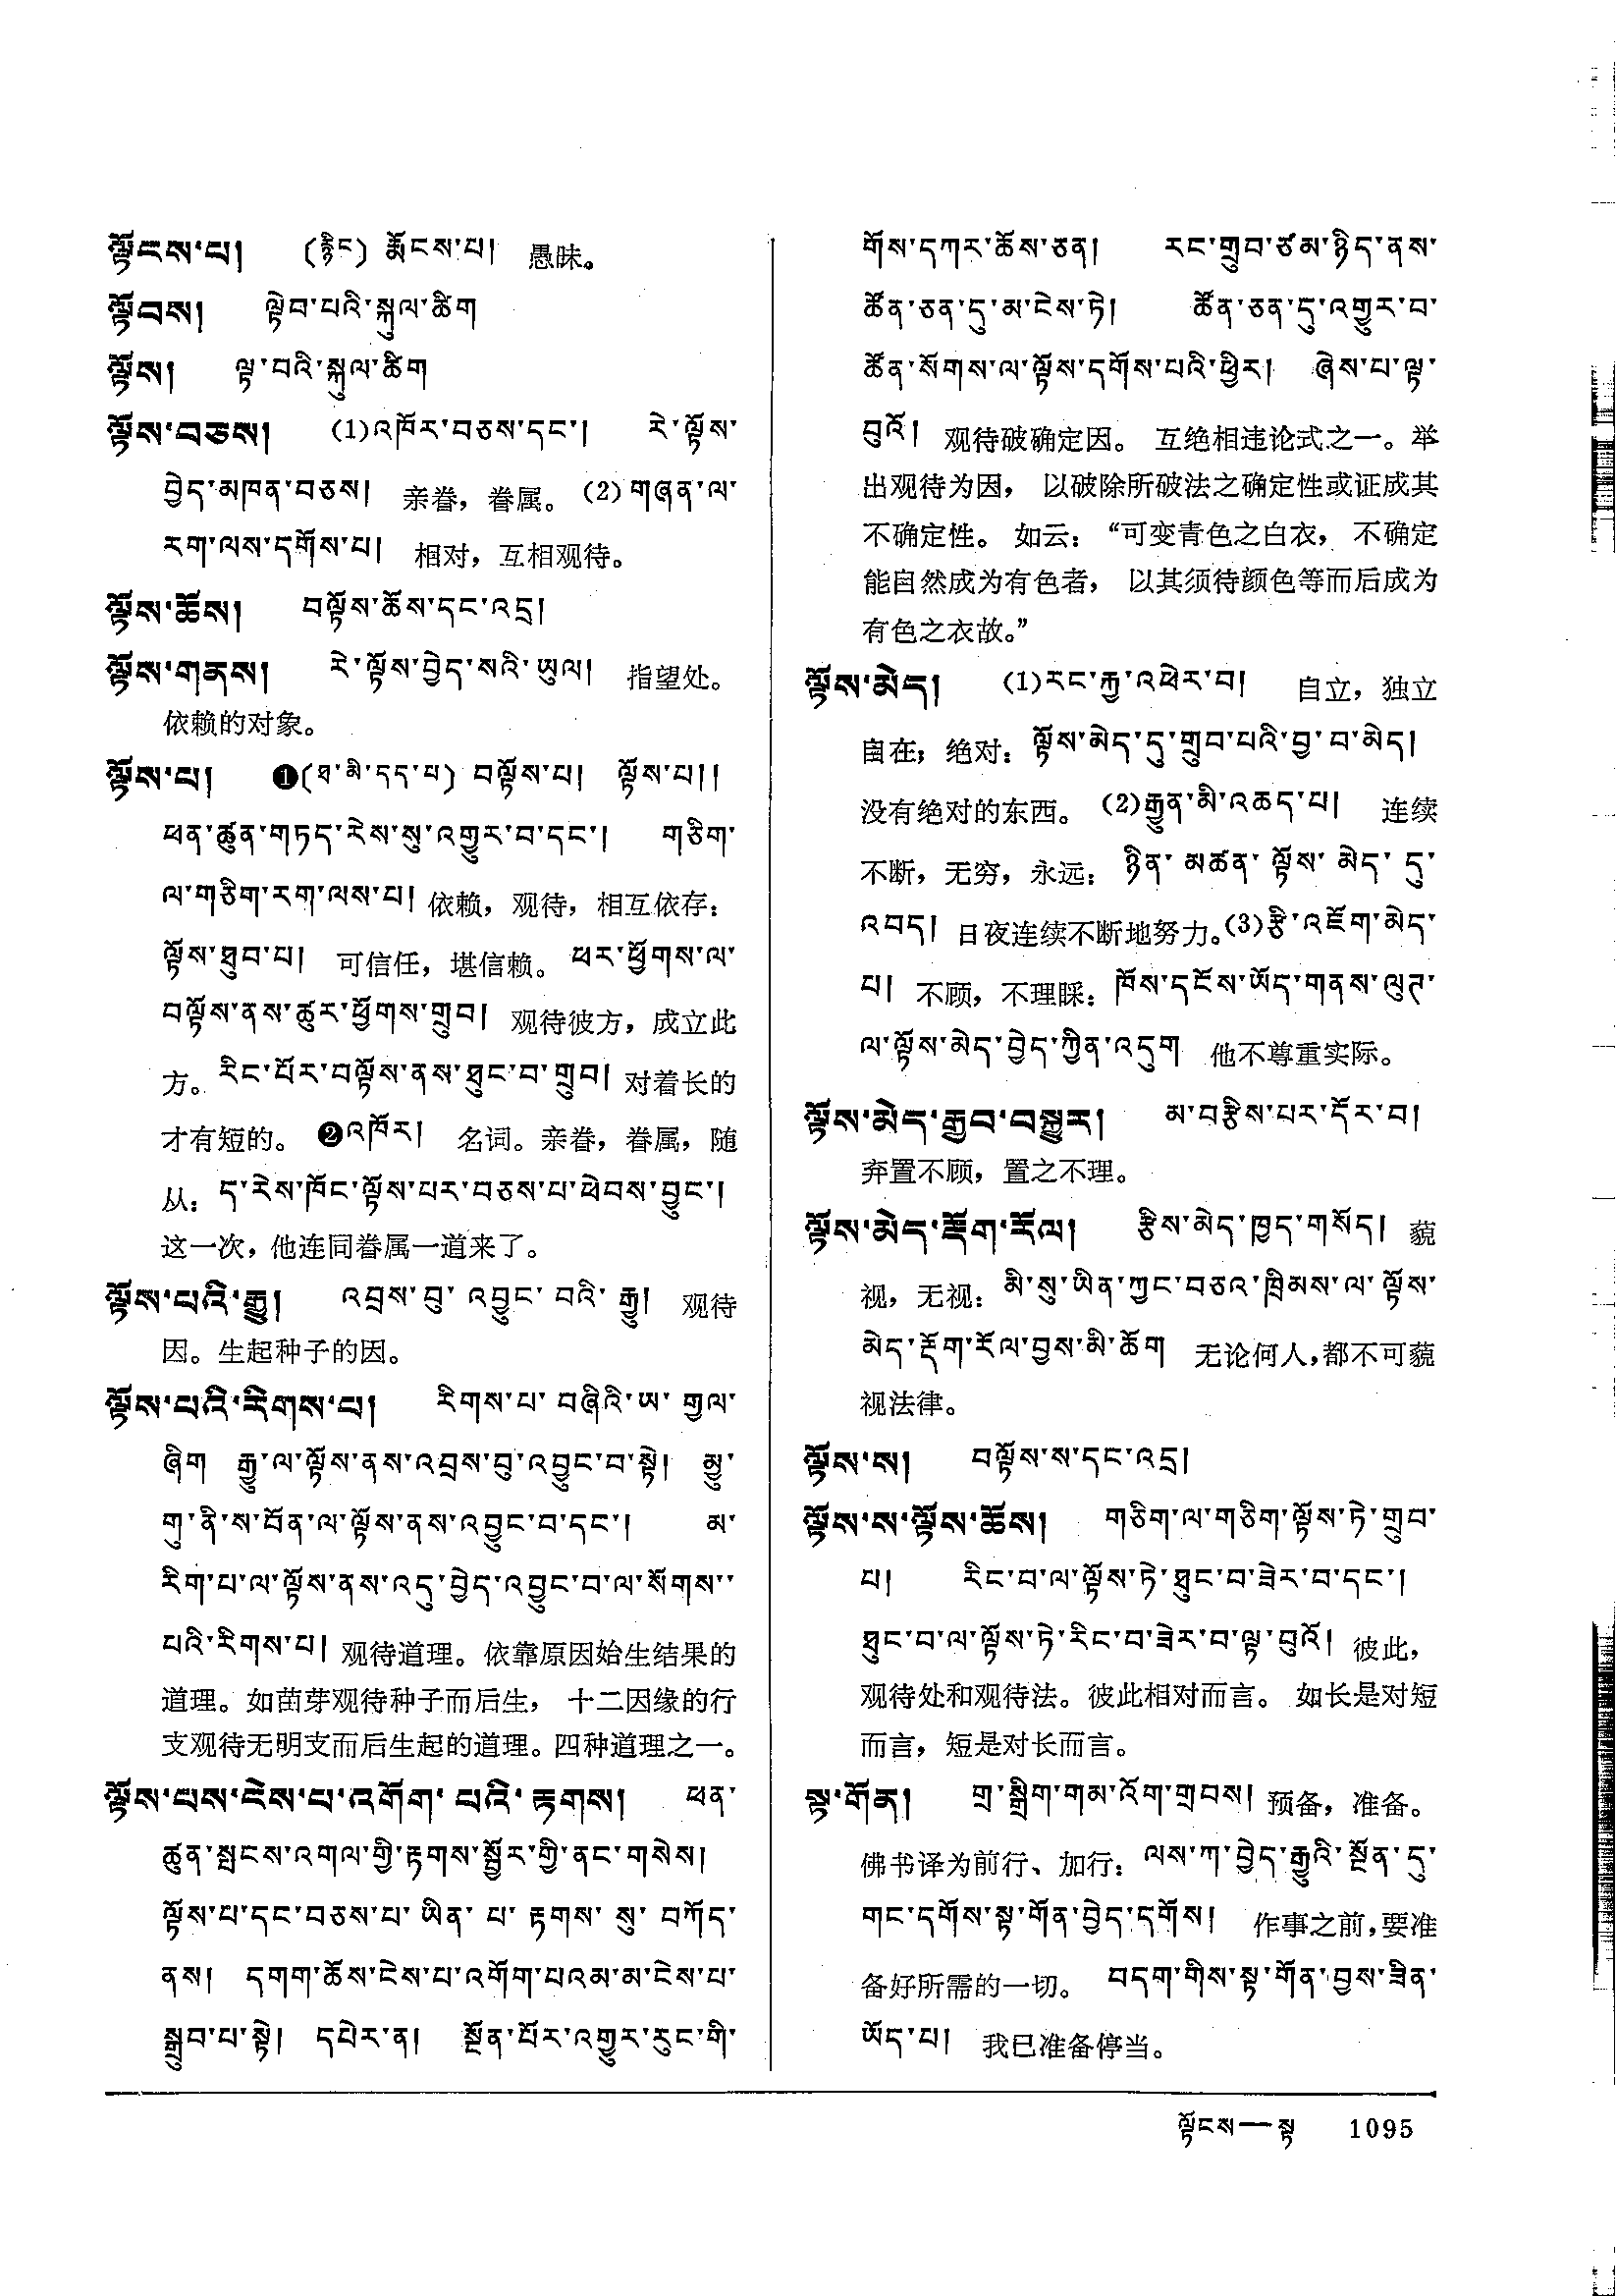 ལྟོངས་པ།  (རྙིང) རྨོངས་པ།  愚昧。
ལྟོབས།  ལྟེབ་པའི་སྐུལ་ཚིག
ལྟོས།  ལྟ་བའི་སྐུལ་ཚིག
ལྟོས་བཅས།  (1)འཁོར་བཅས་དང་།  རེ་ལྟོས་
བྱེད་མཁན་བཅས།  亲眷，眷属。(2)གཞན་ལ་
རག་ལས་དགོས་པ།  相对，互相观待。
ལྟོས་ཆོས།  བལྟོས་ཆོས་དང་འདྲ།
ལྟོས་གནས།  རེ་ལྟོས་བྱེད་སའི་ཡུལ།  指望处。
依赖的对象。
ལྟོས་པ།  ❶(ཐ་མི་དད་པ) བལྟོས་པ།  ལྟོས་པ།།
ཕན་ཚུན་གཏད་རེས་སུ་འགྱུར་བ་དང་།  གཅིག་
ལ་གཅིག་རག་ལས་པ། 依赖，观待，相互依存：
ལྟོས་ཐུབ་པ།  可信任，堪信赖。 ཕར་ཕྱོགས་ལ་
བལྟོས་ནས་ཚུར་ཕྱོགས་གྲུབ།  观待彼方，成立此
方。རིང་པོར་བལྟོས་ནས་ཐུང་བ་གྲུབ། 对着长的
才有短的。 ❷འཁོར།  名词。亲眷，眷属，随
从：ད་རེས་ཁོང་ལྟོས་པར་བཅས་པ་ཕེབས་བྱུང་།
这一次，他连同眷属一道来了。
ལྟོས་པའི་རྒྱུ།  འབྲས་བུ་འབྱུང་བའི་རྒྱུ།  观待
因。生起种子的因。
ལྟོས་པའི་རིགས་པ།  རིགས་པ་བཞིའི་ཡ་གྱལ་
ཞིག  རྒྱུ་ལ་ལྟོས་ནས་འབྲས་བུ་འབྱུང་བ་སྟེ།  མྱུ་
གུ་ནི་ས་བོན་ལ་ལྟོས་ནས་འབྱུང་བ་དང་།  མ་
རིག་པ་ལ་ལྟོས་ནས་འདུ་བྱེད་འབྱུང་བ་ལ་སོགས་་
པའི་རིགས་པ། 观待道理。依靠原因始生结果的
道理。如苗芽观待种子而后生， 十二因缘的行
支观待无明支而后生起的道理。四种道理之一。
ལྟོས་པས་ངེས་པ་འགོག་པའི་རྟགས།  ཕན་
ཚུན་སྤངས་འགལ་གྱི་རྟགས་སྦྱོར་གྱི་ནང་གསེས།
ལྟོས་པ་དང་བཅས་པ་ཡིན་པ་རྟགས་སུ་བཀོད་
ནས།  དགག་ཆོས་ངེས་པ་འགོག་པའམ་མ་ངེས་པ་
སྒྲུབ་པ་སྟེ།  དཔེར་ན།  སྔོན་པོར་འགྱུར་རུང་གི་
གོས་དཀར་ཆོས་ཅན།  རང་གྲུབ་ཙམ་ཉིད་ནས་
ཚོན་ཅན་དུ་མ་ངེས་ཏེ།  ཚོན་ཅན་དུ་འགྱུར་བ་
ཚོན་སོགས་ལ་ལྟོས་དགོས་པའི་ཕྱིར།  ཞེས་པ་ལྟ་
བུའོ།  观待破确定因。 互绝相违论式之一。举
出观待为因， 以破除所破法之确定性或证成其
不确定性。 如云：“可变青色之白衣， 不确定
能自然成为有色者， 以其须待颜色等而后成为
有色之衣故。”
ལྟོས་མེད།  (1)རང་རྐྱ་འཕེར་བ།  自立，独立
自在；绝对：ལྟོས་མེད་དུ་གྲུབ་པའི་བྱ་བ་མེད།
没有绝对的东西。 (2)རྒྱུན་མི་འཆད་པ།  连续
不断，无穷，永远：ཉིན་མཚན་ལྟོས་མེད་དུ་
འབད།  日夜连续不断地努力。(3)རྩི་འཇོག་མེད་
པ།  不顾，不理睬：ཁོས་དངོས་ཡོད་གནས་ལུཊ་
ལ་ལྟོས་མེད་བྱེད་ཀྱིན་འདུག  他不尊重实际。
ལྟོས་མེད་རྒྱབ་བསྐྱུར།  མ་བརྩིས་པར་དོར་བ།
弃置不顾，置之不理。
ལྟོས་མེད་རྡོག་རོལ།  རྩིས་མེད་ཁྱད་གསོད།  藐
视，无视：མི་སུ་ཡིན་ཀྱང་བཅའ་ཁྲིམས་ལ་ལྟོས་
མེད་རྡོག་རོལ་བྱས་མི་ཆོག  无论何人，都不可藐
视法律。
ལྟོས་ས།  བལྟོས་ས་དང་འདྲ།
ལྟོས་ས་ལྟོས་ཆོས།  གཅིག་ལ་གཅིག་ལྟོས་ཏེ་གྲུབ་
པ།  རིང་བ་ལ་ལྟོས་ཏེ་ཐུང་བ་ཟེར་བ་དང་།
ཐུང་བ་ལ་ལྟོས་ཏེ་རིང་བ་ཟེར་བ་ལྟ་བུའོ།  彼此，
观待处和观待法。彼此相对而言。 如长是对短
而言，短是对长而言。
སྟ་གོན།  གྲ་སྒྲིག་གམ་འོག་གྲབས།  预备，准备。
佛书译为前行、加行：ལས་ཀ་བྱེད་རྒྱུའི་སྔོན་དུ་
གང་དགོས་སྟ་གོན་བྱེད་དགོས།  作事之前，要准
备好所需的一切。 བདག་གིས་སྟ་གོན་བྱས་ཟིན་
ཡོད་པ།  我已准备停当。
ལྟོངས—སྟ  1095